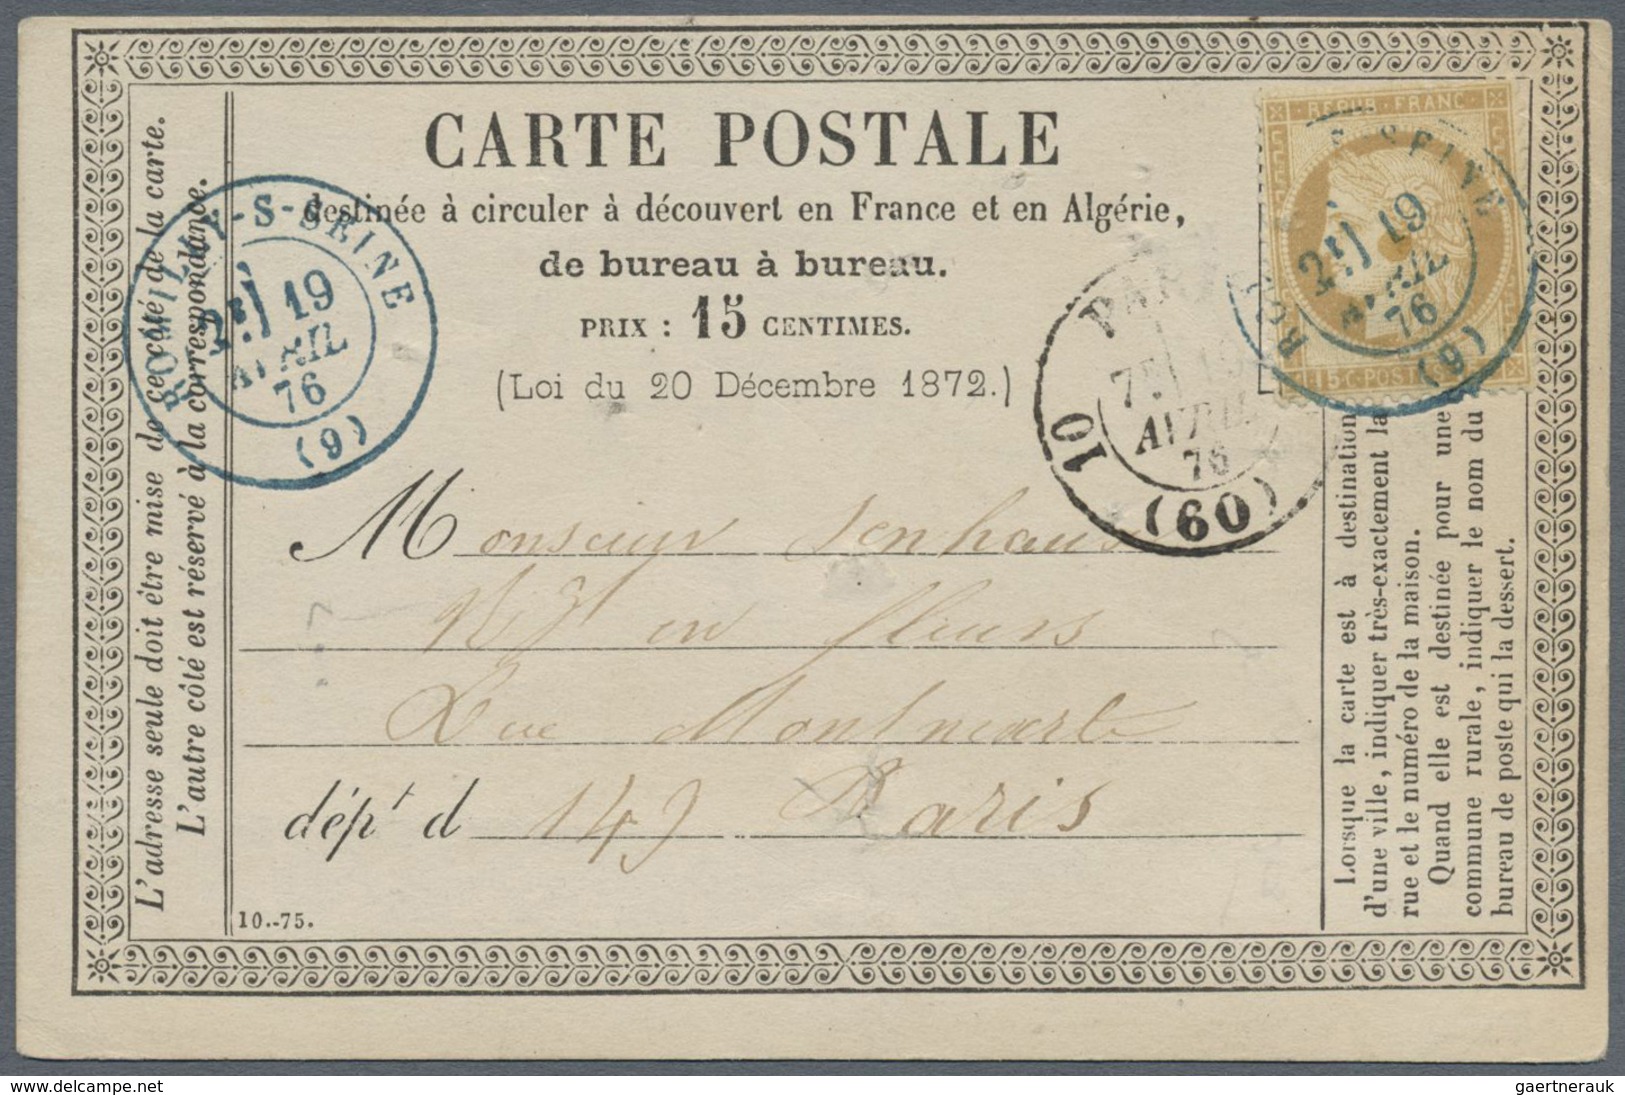 CARTE POSTALE
destinée à circuler à découvert en France et en Algérie,
de bureau à bureau.
PRIX : 15 CENTIMES.
(Loi du 20 Décembre 1872.)
L'adresse seule doit être mise de ce côté de la carte.
L'autre côté est réservé à la correspondance.
ROMILLY-S-SEINE
2E 19
AVRIL
76
(9)
REPUB FRANC
15 C POSTES
S-SEINE
2E 19
AVRIL
76
(9)
PARIS
7E 19
AVRIL
76
10
(60)
Monsieur
en fleurs
Rue Montmartre
dépt d 149 Paris
10.-75.
Lorsque la carte est à destination
d'une ville, indiquer très-exactement la
rue et le numéro de la maison.
Quand elle est destinée pour une
commune rurale, indiquer le nom du
bureau de poste qui la dessert.
delcampe.net
gaertnerauk